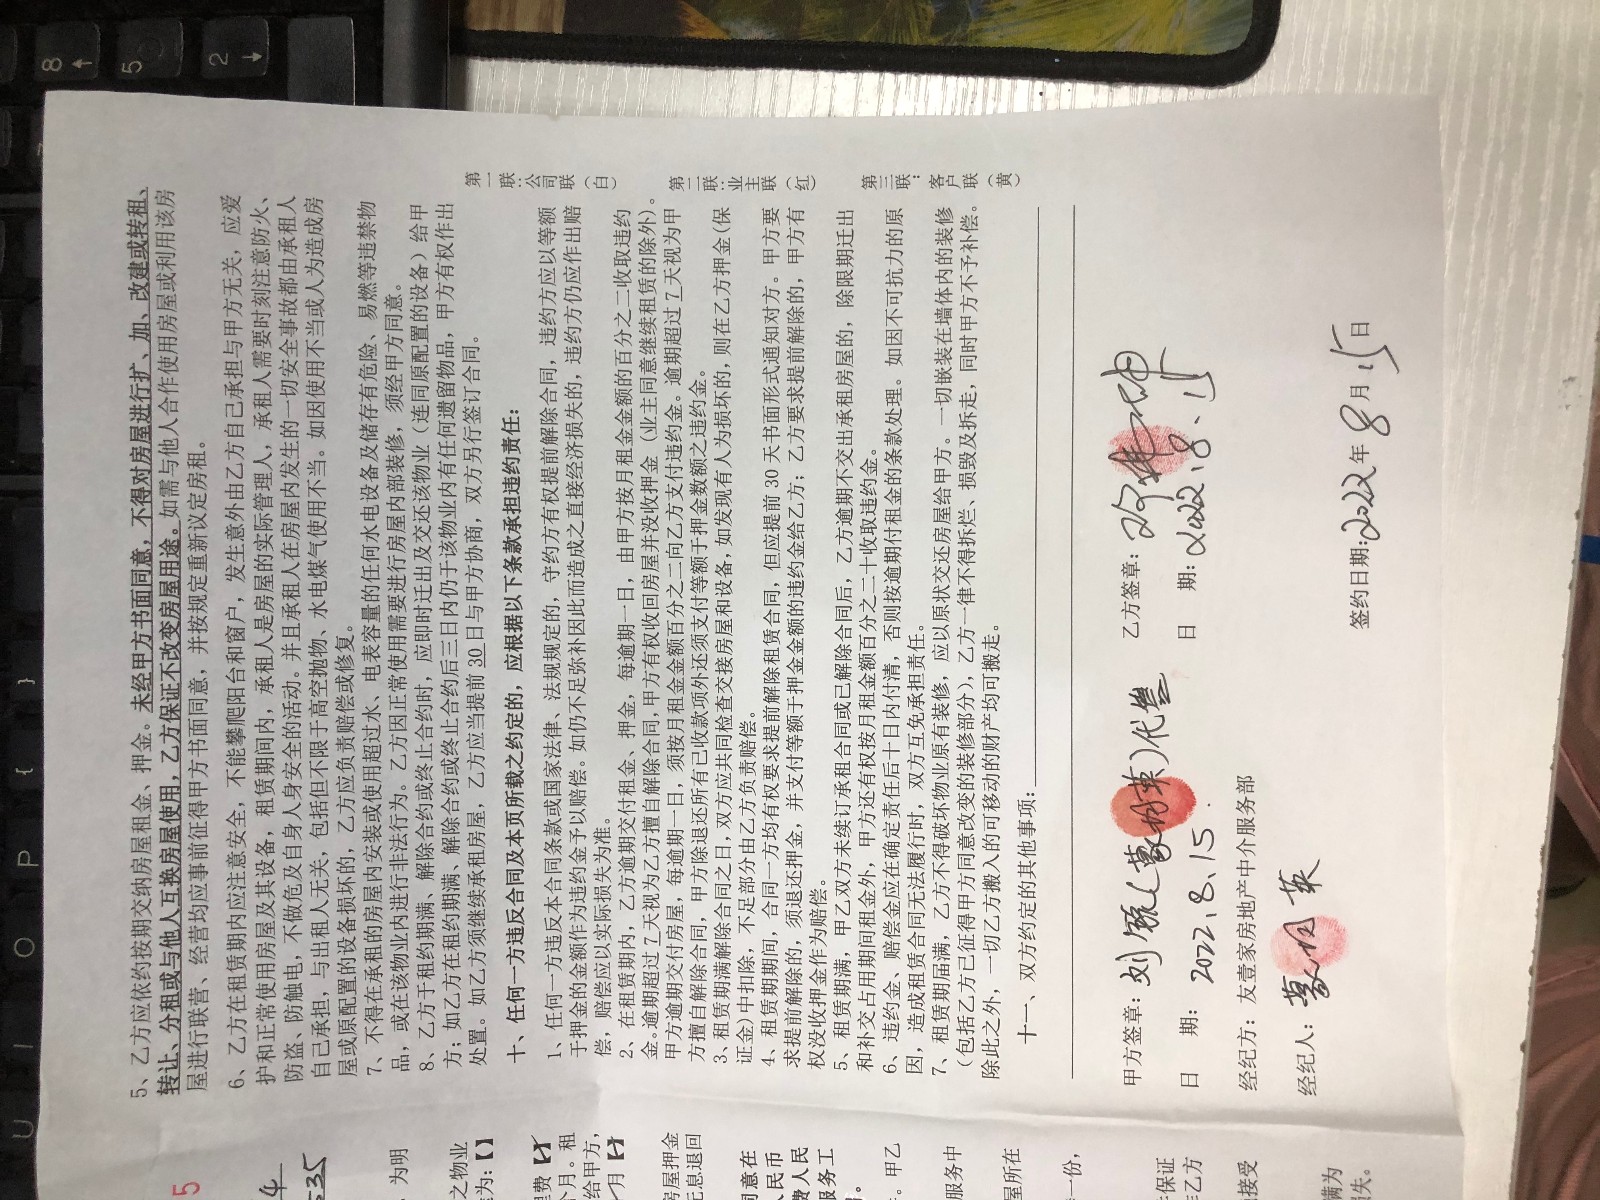 5、乙方应依约按期交纳房屋租金、押金。未经甲方书面同意，不得对房屋进行扩、加、改建或转租、
转让、分租或与他人互换房屋使用，乙方保证不改变房屋用途。如需与他人合作使用房屋或利用该房
屋进行联营、经营均应事前征得甲方书面同意，并按规定重新议定房租。
6、乙方在租赁期内应注意安全，不能攀爬阳台和窗户，发生意外由乙方自己承担与甲方无关，应爱
护和正常使用房屋及其设备，租赁期间内，承租人是房屋的实际管理人，承租人需要时刻注意防火、
防盗、防触电，不做危及自身人身安全的活动。并且承租人在房屋内发生的一切安全事故都由承租人
自己承担，与出租人无关，包括但不限于高空抛物、水电煤气使用不当。如因使用不当或人为造成房
屋或原配置的设备损坏的，乙方应负责赔偿或修复。
7、不得在承租的房屋内安装或使用超过水、电表容量的任何水电设备及储存有危险、易燃等违禁物
品，或在该物业内进行非法行为。乙方因正常使用需要进行房屋内部装修，须经甲方同意。
8、乙方于租约期满、解除合约或终止合约时，应即时迁出及交还该物业（连同原配置的设备）给甲
方；如乙方在租约期满、解除合约或终止合约后三日内仍于该物业内有任何遗留物品，甲方有权作出
处置。如乙方须继续承租房屋，乙方应当提前 30 日与甲方协商，双方另行签订合同。
十、任何一方违反合同及本页所载之约定的，应根据以下条款承担违约责任：
1、任何一方违反本合同条款或国家法律、法规规定的，守约方有权提前解除合同，违约方应以等额
于押金的金额作为违约金予以赔偿。如仍不足弥补因此而造成之直接经济损失的，违约方仍应作出赔
偿，赔偿应以实际损失为准。
2、在租赁期内，乙方逾期交付租金、押金，每逾期一日，由甲方按月租金金额的百分之二收取违约
金。逾期超过 7 天视为乙方擅自解除合同，甲方有权收回房屋并没收押金（业主同意继续租赁的除外）。
甲方逾期交付房屋，每逾期一日，须按月租金金额百分之二向乙方支付违约金。逾期超过 7 天视为甲
方擅自解除合同，甲方除退还所有已收款项外还须支付等额于押金数额之违约金。
3、租赁期满解除合同之日，双方应共同检查交接房屋和设备，如发现有人为损坏的，则在乙方押金（保
证金）中扣除，不足部分由乙方负责赔偿。
4、租赁期期间，合同一方均有权要求提前解除租赁合同，但应提前 30 天书面形式通知对方。甲方要
求提前解除的，须退还押金，并支付等额于押金金额的违约金给乙方；乙方要求提前解除的，甲方有
权没收押金作为赔偿。
5、租赁期满，甲乙双方未续订承租合同或已解除合同后，乙方逾期不交出承租房屋的，除限期迁出
和补交占用期间租金外，甲方还有权按月租金额百分之二十收取违约金。
6、违约金、赔偿金应在确定责任后十日内付清，否则按逾期付租金的条款处理。如因不可抗力的原
因，造成租赁合同无法履行时，双方互免承担责任。
7、租赁期届满，乙方不得破坏物业原有装修，应以原状交还房屋给甲方。一切嵌装在墙体内的装修
（包括乙方已征得甲方同意改变的装修部分），乙方一律不得拆烂、损毁及拆走，同时甲方不予补偿。
除此之外，一切乙方搬入的可移动的财产均可搬走。
十一、双方约定的其他事项：
第一联：公司联（白）
第二联：业主联（红）
第三联：客户联（黄）
甲方签章：刘 代 乙方签章：
日 期：2022.8.15. 日 期：2022.8.15
经纪方：友壹家房地产中介服务部
经纪人： 英
签约日期：2022年8月15日
5
4
=35
为明
之物业
为：【】
租
给甲方，
月
房屋押金
无息退回
同意在
人民币
费人民
服务工
。甲乙
服务中
屋所在
一份，
保证
乙方
接受
满为
失。
8
5
2
U
I
O
P
{
}